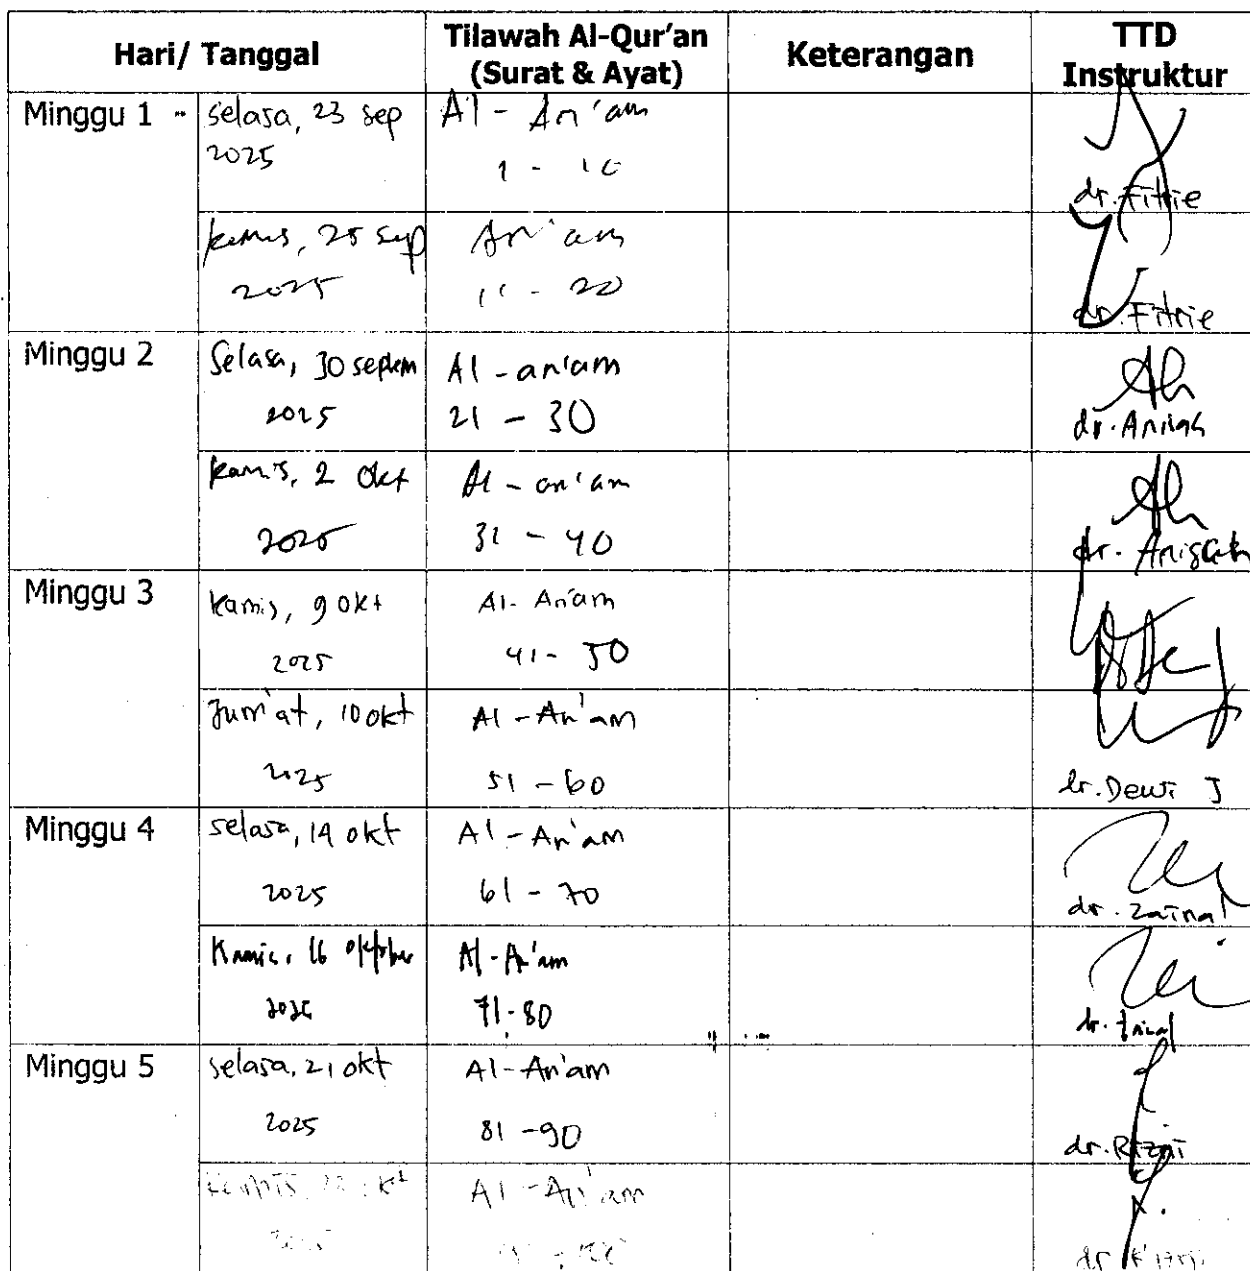 Hari/ Tanggal
Tilawah Al-Qur'an
(Surat & Ayat)
Keterangan
TTD
Instruktur
Minggu 1
selasa, 23 sep
2025
Al - An'am
1 - 10
dr. Fitrie
kamis, 25 sep
2025
An'am
11 - 20
dr. Fitrie
Minggu 2
Selasa, 30 septem
2025
Al - an'am
21 - 30
dr. Anisah
kamis, 2 Okt
2025
Al - an'am
31 - 40
dr. Anisah
Minggu 3
kamis, 9 okt
2025
Al- An'am
41 - 50
Jum'at, 10 okt
2025
Al - An'am
51 - 60
dr. Dewi J
Minggu 4
selasa, 14 okt
2025
Al - An'am
61 - 70
dr. Zainal
Kamis, 16 oktober
2025
Al - An'am
71 - 80
dr. Zainal
Minggu 5
selasa, 21 okt
2025
Al - An'am
81 - 90
dr. Rizqi
kamis, okt
2025
Al - An'am
dr.